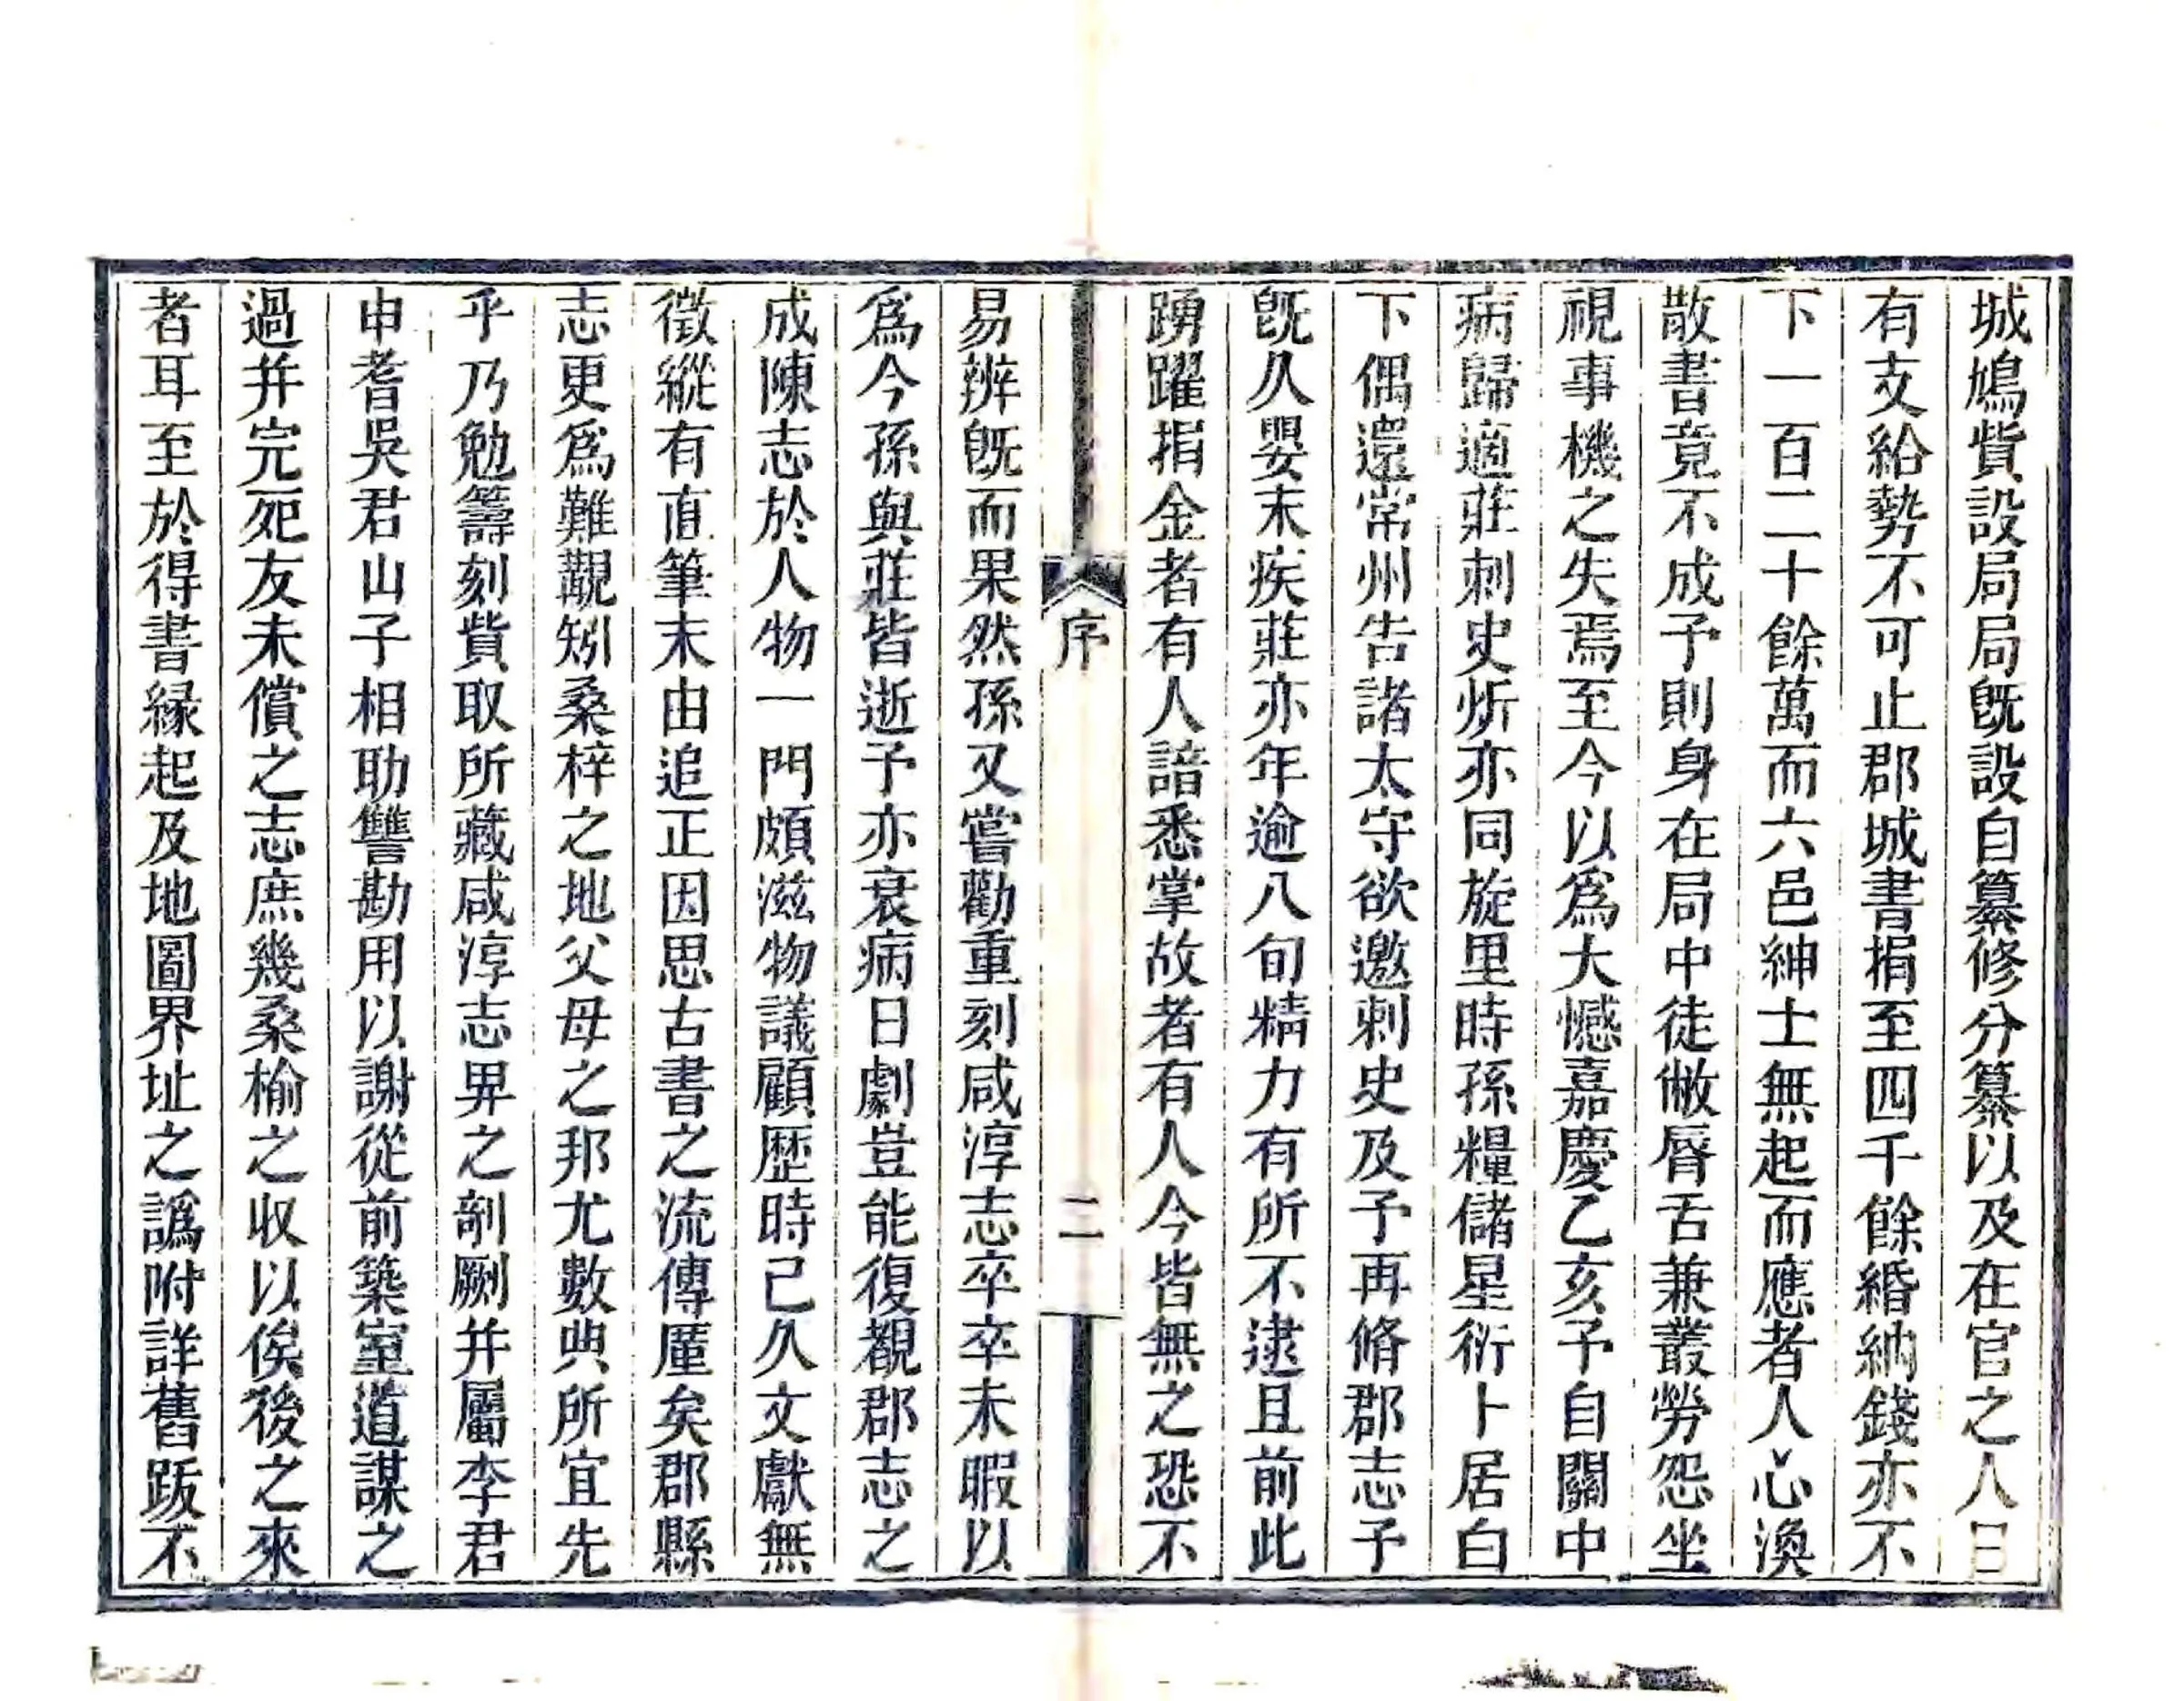 城鳩貲設局局既設自纂修分纂以及在官之人日
有支給勢不可止郡城書捐至四千餘緡納錢亦不
下一百二十餘萬而六邑紳士無起而應者人心渙
散書竟不成予則身在局中徒敝脣舌兼叢勞怨坐
視事機之失焉至今以爲大憾嘉慶乙亥予自關中
病歸適莊刺史炘亦同旋里時孫糧儲星衍卜居白
下偶還常州告諸太守欲邀刺史及予再脩郡志予
既久嬰末疾莊亦年逾八旬精力有所不逮且前此
踴躍捐金者有人諳悉掌故者有人今皆無之恐不
序
二
易辨既而果然孫又嘗勸重刻咸淳志卒卒未暇以
爲今孫與莊皆逝予亦衰病日劇豈能復覩郡志之
成陳志於人物一門頗滋物議顧歷時已久文獻無
徵縱有直筆末由追正因思古書之流傳厪矣郡縣
志更爲難覯矧桑梓之地父母之邦尤數典所宜先
乎乃勉籌刻貲取所藏咸淳志畀之剞劂并屬李君
申耆吳君山子相助讐勘用以謝從前築室道謀之
過并完死友未償之志庶幾桑榆之收以俟後之來
者耳至於得書緣起及地圖界址之譌附詳舊跋不